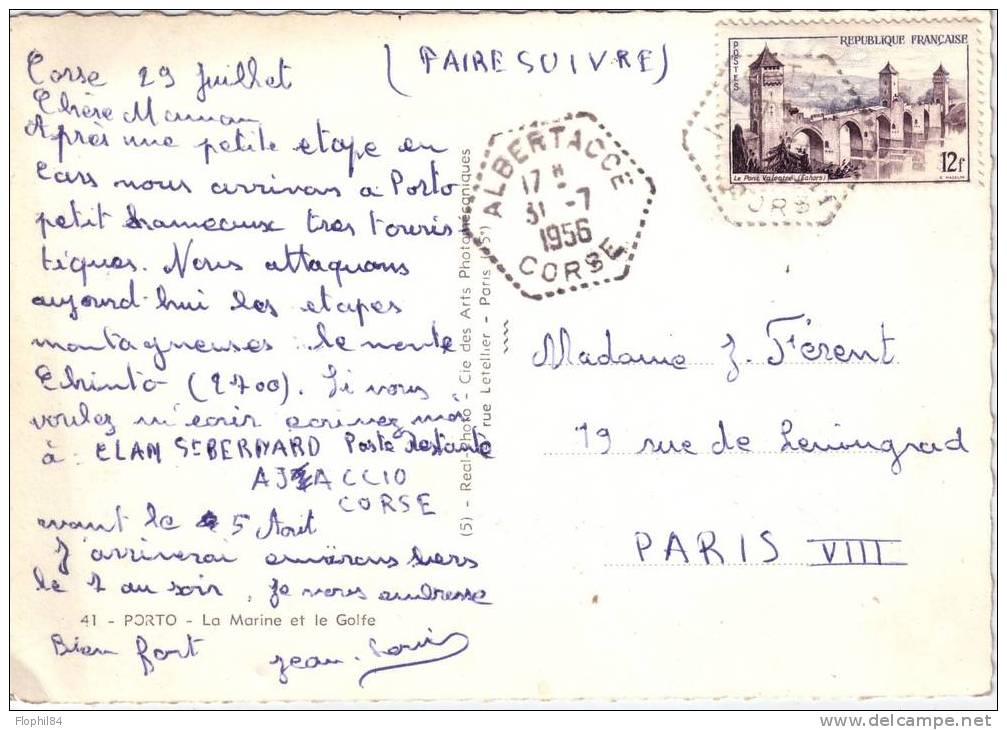 (FAIRE SUIVRE)
Corse 29 Juillet
Chère Maman
Apres une petite etape en
Cars nous arrivons a Porto
petit hameaux tres touris
tiques. Nous attaquons
aujourd-hui les etapes
montagneuses : le monte
Chinto (2700). Si vous
voulez m'ecrir ecrivez moi
à : CLAN St BERNARD Poste Restante
AJACCIO
CORSE
avant le 5 Août
J'arriverai environs vers
le 7 au soir, Je vous embrasse
41 - PORTO - La Marine et le Golfe
Bien fort Jean-Louis
(5) - Real-Photo - Cie des Arts Photomécaniques
rue Letellier - Paris (15e)
ALBERTACCE
17 H
31 -7
1956
CORSE
REPUBLIQUE FRANÇAISE
POSTES
12f
Le Pont Valentré (Cahors)
ORS
Madame J. Férent
19 rue de Leningrad
PARIS VIII
Flophil84
www.delcampe.net